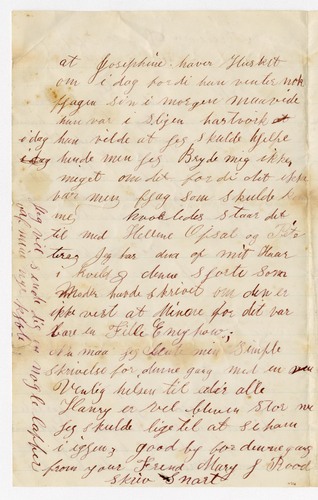 at Josephine haver Husket
om i dag fordi hun venter nok
Pjagen sin i morgen maavide
han var i sligen hartvork at
i dag hun vilde at jeg skulde hjelpe
hende men jeg Bryde mig ikke
meget om det fordi det ikke
var meng Pjag som skulde
me hvorledes staar det
til med Hellene Opsal og
jeg har
i Hvild denne Sjorte som
Moder havde skrevet om den er
ikke vert at Minore for det var
bare en Fille Enyhow;
Nu maa jeg slute min Simple
skrivelse for denne gang med en
Venlig helsen til eder alle
Hanry er vel bleven stor nu
jeg skulde lige til at se ham
i iggen, good by for denne gang
from your Frend Mary J Rood
Skriv Snart
Jeg vil sende dig en nogle lapper
af min nye kjole